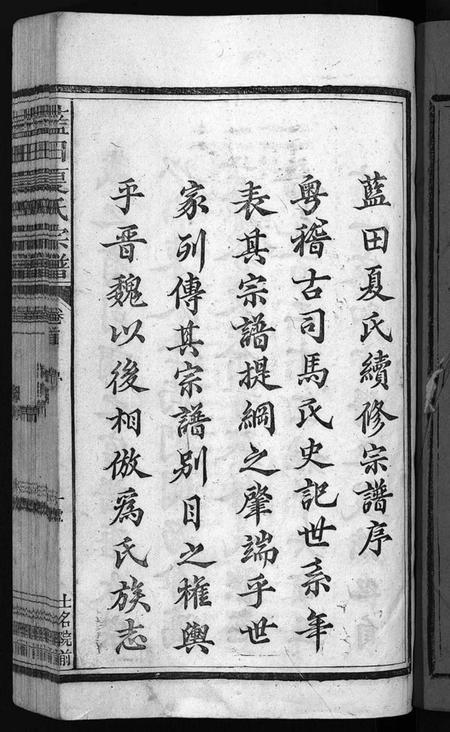 藍田夏氏續修宗譜序
粵稽古司馬氏史記世系年
表其宗譜提綱之肇端乎世
家列傳其宗譜別目之權輿
乎晉魏以後相倣為氏族志
藍田夏氏宗譜
卷首